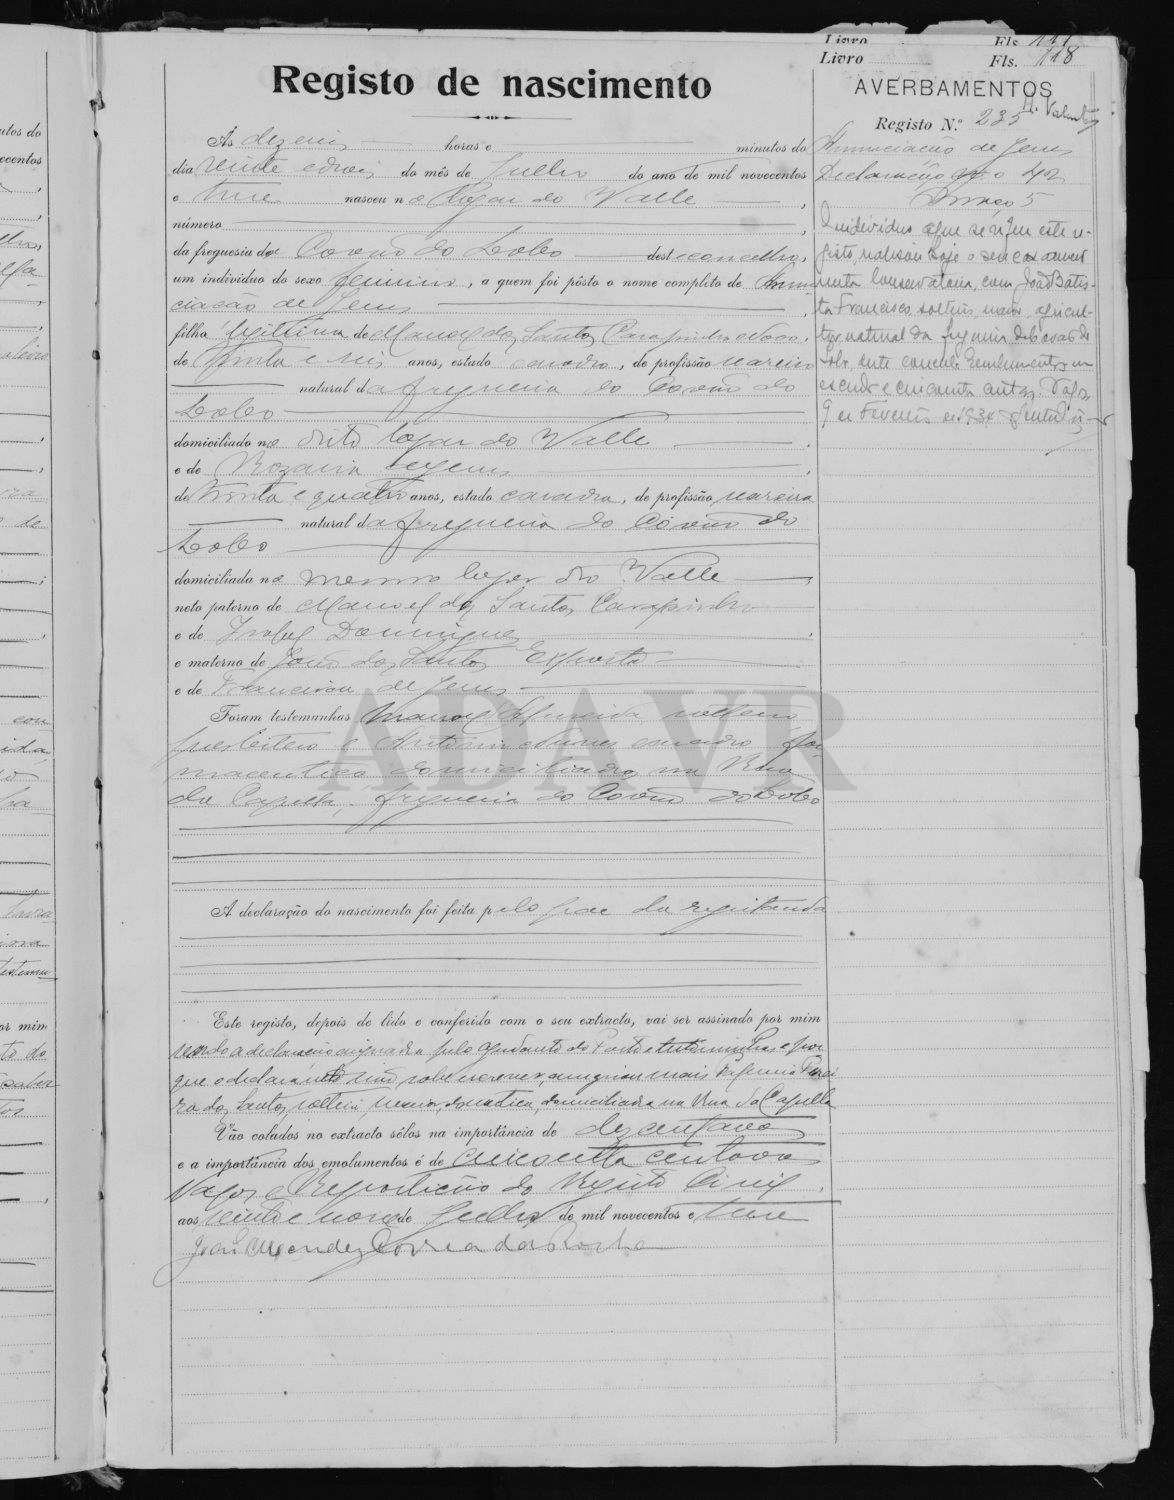 Livro Fls. 117
Livro Fls. 118
Registo de nascimento
AVERBAMENTOS
Registo N.º 235
Ás dezeseis horas e minutos do
dia vinte e dois do mês de Julho do ano de mil novecentos
e treze nasceu no logar do Valle,
número
da freguesia de Covão do Lobo deste concelho,
um individuo do sexo feminino, a quem foi pôsto o nome completo de Annun
ciação de Jesus,
filha legitima de Manoel dos Santos Carapinho Novo,
de trinta e seis anos, estado casado, de profissão
natural da freguesia do Covão do
Lobo
domiciliado no dito logar do Valle,
e de Rozaria Jesus,
de trinta e quatro anos, estado casada, de profissão
natural da freguesia do Covão do
Lobo
domiciliada no mesmo logar do Valle,
neto paterno de Manoel dos Santos Carapinho
e de Izabel Domingues,
e materno de João dos Santos Exposto
e de Francisca de Jesus
Foram testemunhas Manoel solteiro
presbitero e Antonio Nunes casado far
maceutico domiciliados na Rua
da Capella, freguesia do Covão do Lobo
A declaração do nascimento foi feita pelo pae da registanda
Este registo, depois de lido e conferido com o seu extracto, vai ser assinado por mim
sendo a declaração assignada pelo ajudante do Posto e testemunhas, e por
que o declarante não sabe escrever, assignou mais
dos Santos, solteira domestica, domiciliada na Rua da Capella
Vão colados no extracto sêlos na importância de dez centavos
e a importância dos emolumentos é de cincoenta centavos
Vagos e Repartição do Registo Civil,
aos vinte e nove de Julho de mil novecentos e treze
João Mendes Correia da Rocha
Annunciação de Jesus
Declaração n.º 42
Março 5
O individuo a que se refere este re-
gisto, realisou hoje o seu casamento
nesta Conservatoria, com João Batis-
ta Francisco, solteiro, maior, agricul-
tor, natural da freguesia de Covão do
Lobo, deste concelho. Emolumentos um
escudo e cincoenta centavos. Vagos,
9 de Fevereiro de 1934
ADAVR